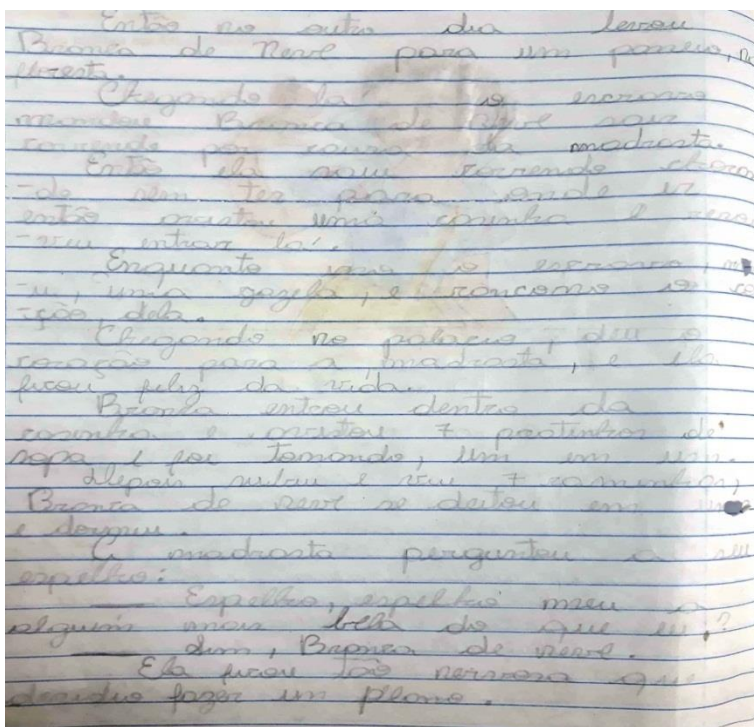 Então no outro dia levou
Branca de Neve para um passeio, na
floresta.
Chegando lá o escravo
mandou Branca de Neve sair
correndo por causa da madrasta.
Então ela saiu correndo choran
-do sem ter para onde ir
então avistou uma casinha e resol
-veu entrar lá.
Enquanto isso o escravo,
-u, uma gazela, e o co
-ração, dela.
Chegando no palacio, deu o
coração para a madrasta, e ela
ficou feliz da vida.
Branca entrou dentro da
casinha e avistou 7 pratinhos de
sopa e foi tomando, um em um.
Depois subiu e viu 7 caminhas,
Branca de neve se deitou em uma
e dormiu.
A madrasta perguntou a seu
espelho:
— Espelho, espelho meu a
alguém mais bela do que eu?
— Sim, Branca de neve.
Ela ficou tão nervosa que
decidiu fazer um plano.